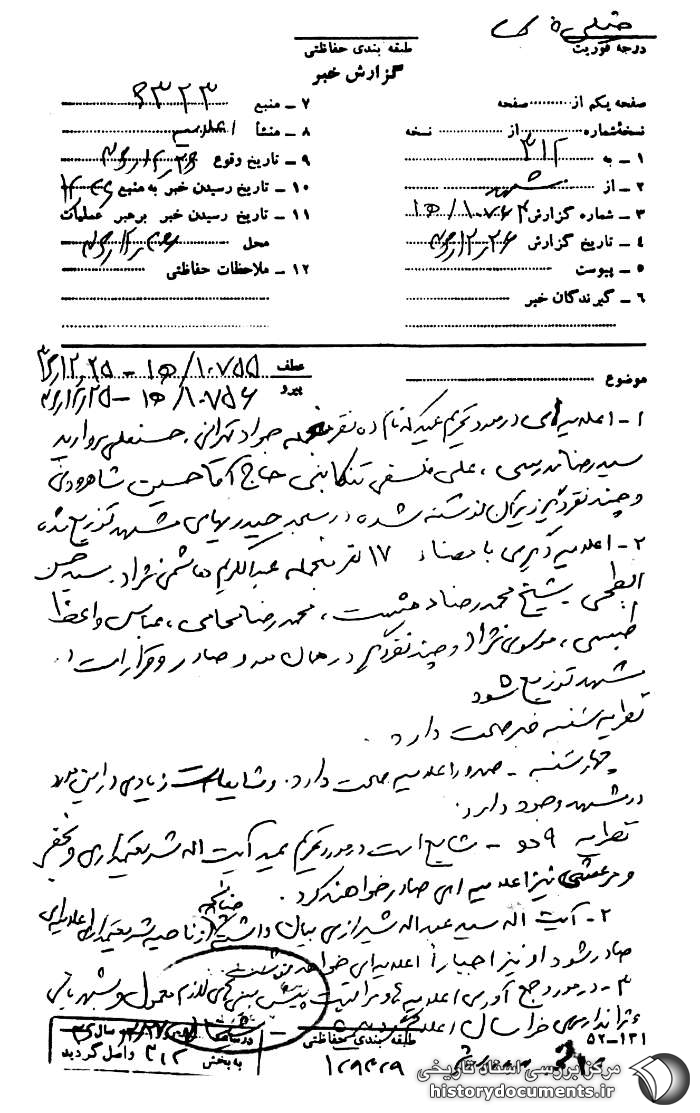 خیلی
درجه فوریت
طبقه بندی حفاظتی
گزارش خبر
صفحه یکم از صفحه
نسخه شماره از نسخه
۱ – به ۳۱۲
۲ – از مشهد
۳ – شماره گزارش
۴ – تاریخ گزارش
۵ – پیوست
۶ – گیرندگان خبر
۷ – منبع ۹۳۲۳
۸ – منشأ اعلامیه
۹ – تاریخ وقوع
۱۰ – تاریخ رسیدن خبر به منبع
۱۱ – تاریخ رسیدن خبر برهبر عملیات
محل
۱۲ – ملاحظات حفاظتی
موضوع
عطف ۱۰۷۵۵/
پیرو ۱۰۷۵۶/
۱ – اعلامیه ای در مورد تحریم عید که نام ده نفر منجمله جواد تهرانی، حسنعلی مروارید
سید رضا مدرسی، علی فلسفی تنکابنی حاج آقا حسین شاهرودی
و چند نفر دیگر زیر آن نوشته شده در مسجد حیدریهای مشهد توزیع شده
۲ – اعلامیه دیگری با امضاء ۱۷ نفر منجمله عبدالکریم هاشمی نژاد. سید حسن
ابطحی شیخ محمدرضا، محمدرضا محامی، عباس واعظ
طبسی، موسوی نژاد و چند نفر دیگر در همان مورد صادر و قرار است در
مشهد توزیع شود
نظریه شنبه خبر صحت دارد.
چهارشنبه – صدور اعلامیه صحت دارد. و شایعات زیادی در این مورد
در مشهد وجود دارد.
نظریه ۹ هـ – شایع است در مورد تحریم عید آیت اله شریعتمداری و نجفی
و مرعشی نیز اعلامیه ای صادر خواهند کرد.
۲ – آیت اله سید عبداله شیرازی بیان داشته چنانچه از ناحیه شریعتمداری اعلامیه ای
صادر شود او نیز اجباراً اعلامیه ای خواهد نوشت
۳ – در مورد جمع آوری اعلامیه ها و مراقبت پیش بینی های لازم معمول و شهربانی
و ژاندارمری خراسان اعلام گردیده
طبقه بندی حفاظتی
۵۲–۱۳۱
در ساعت
به بخش ۳۱۲ واصل گردید
۱۲۹۴۲۹
مرکز بررسی اسناد تاریخی
historydocuments.ir